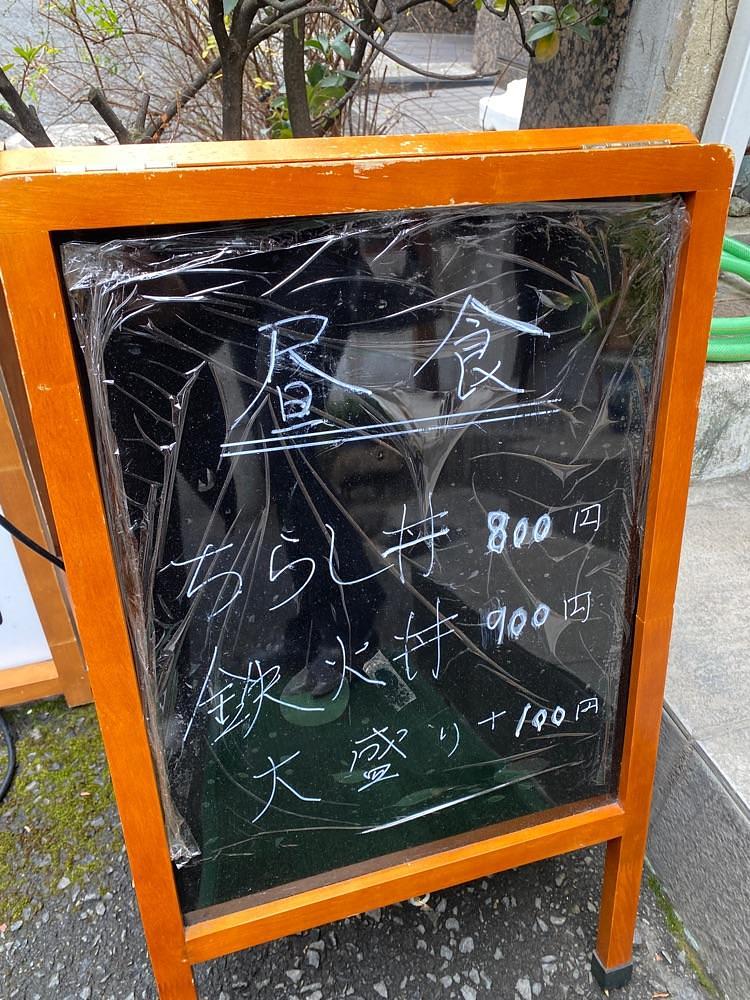 昼食
ちらし丼 800円
鉄火丼 900円
大盛り +100円